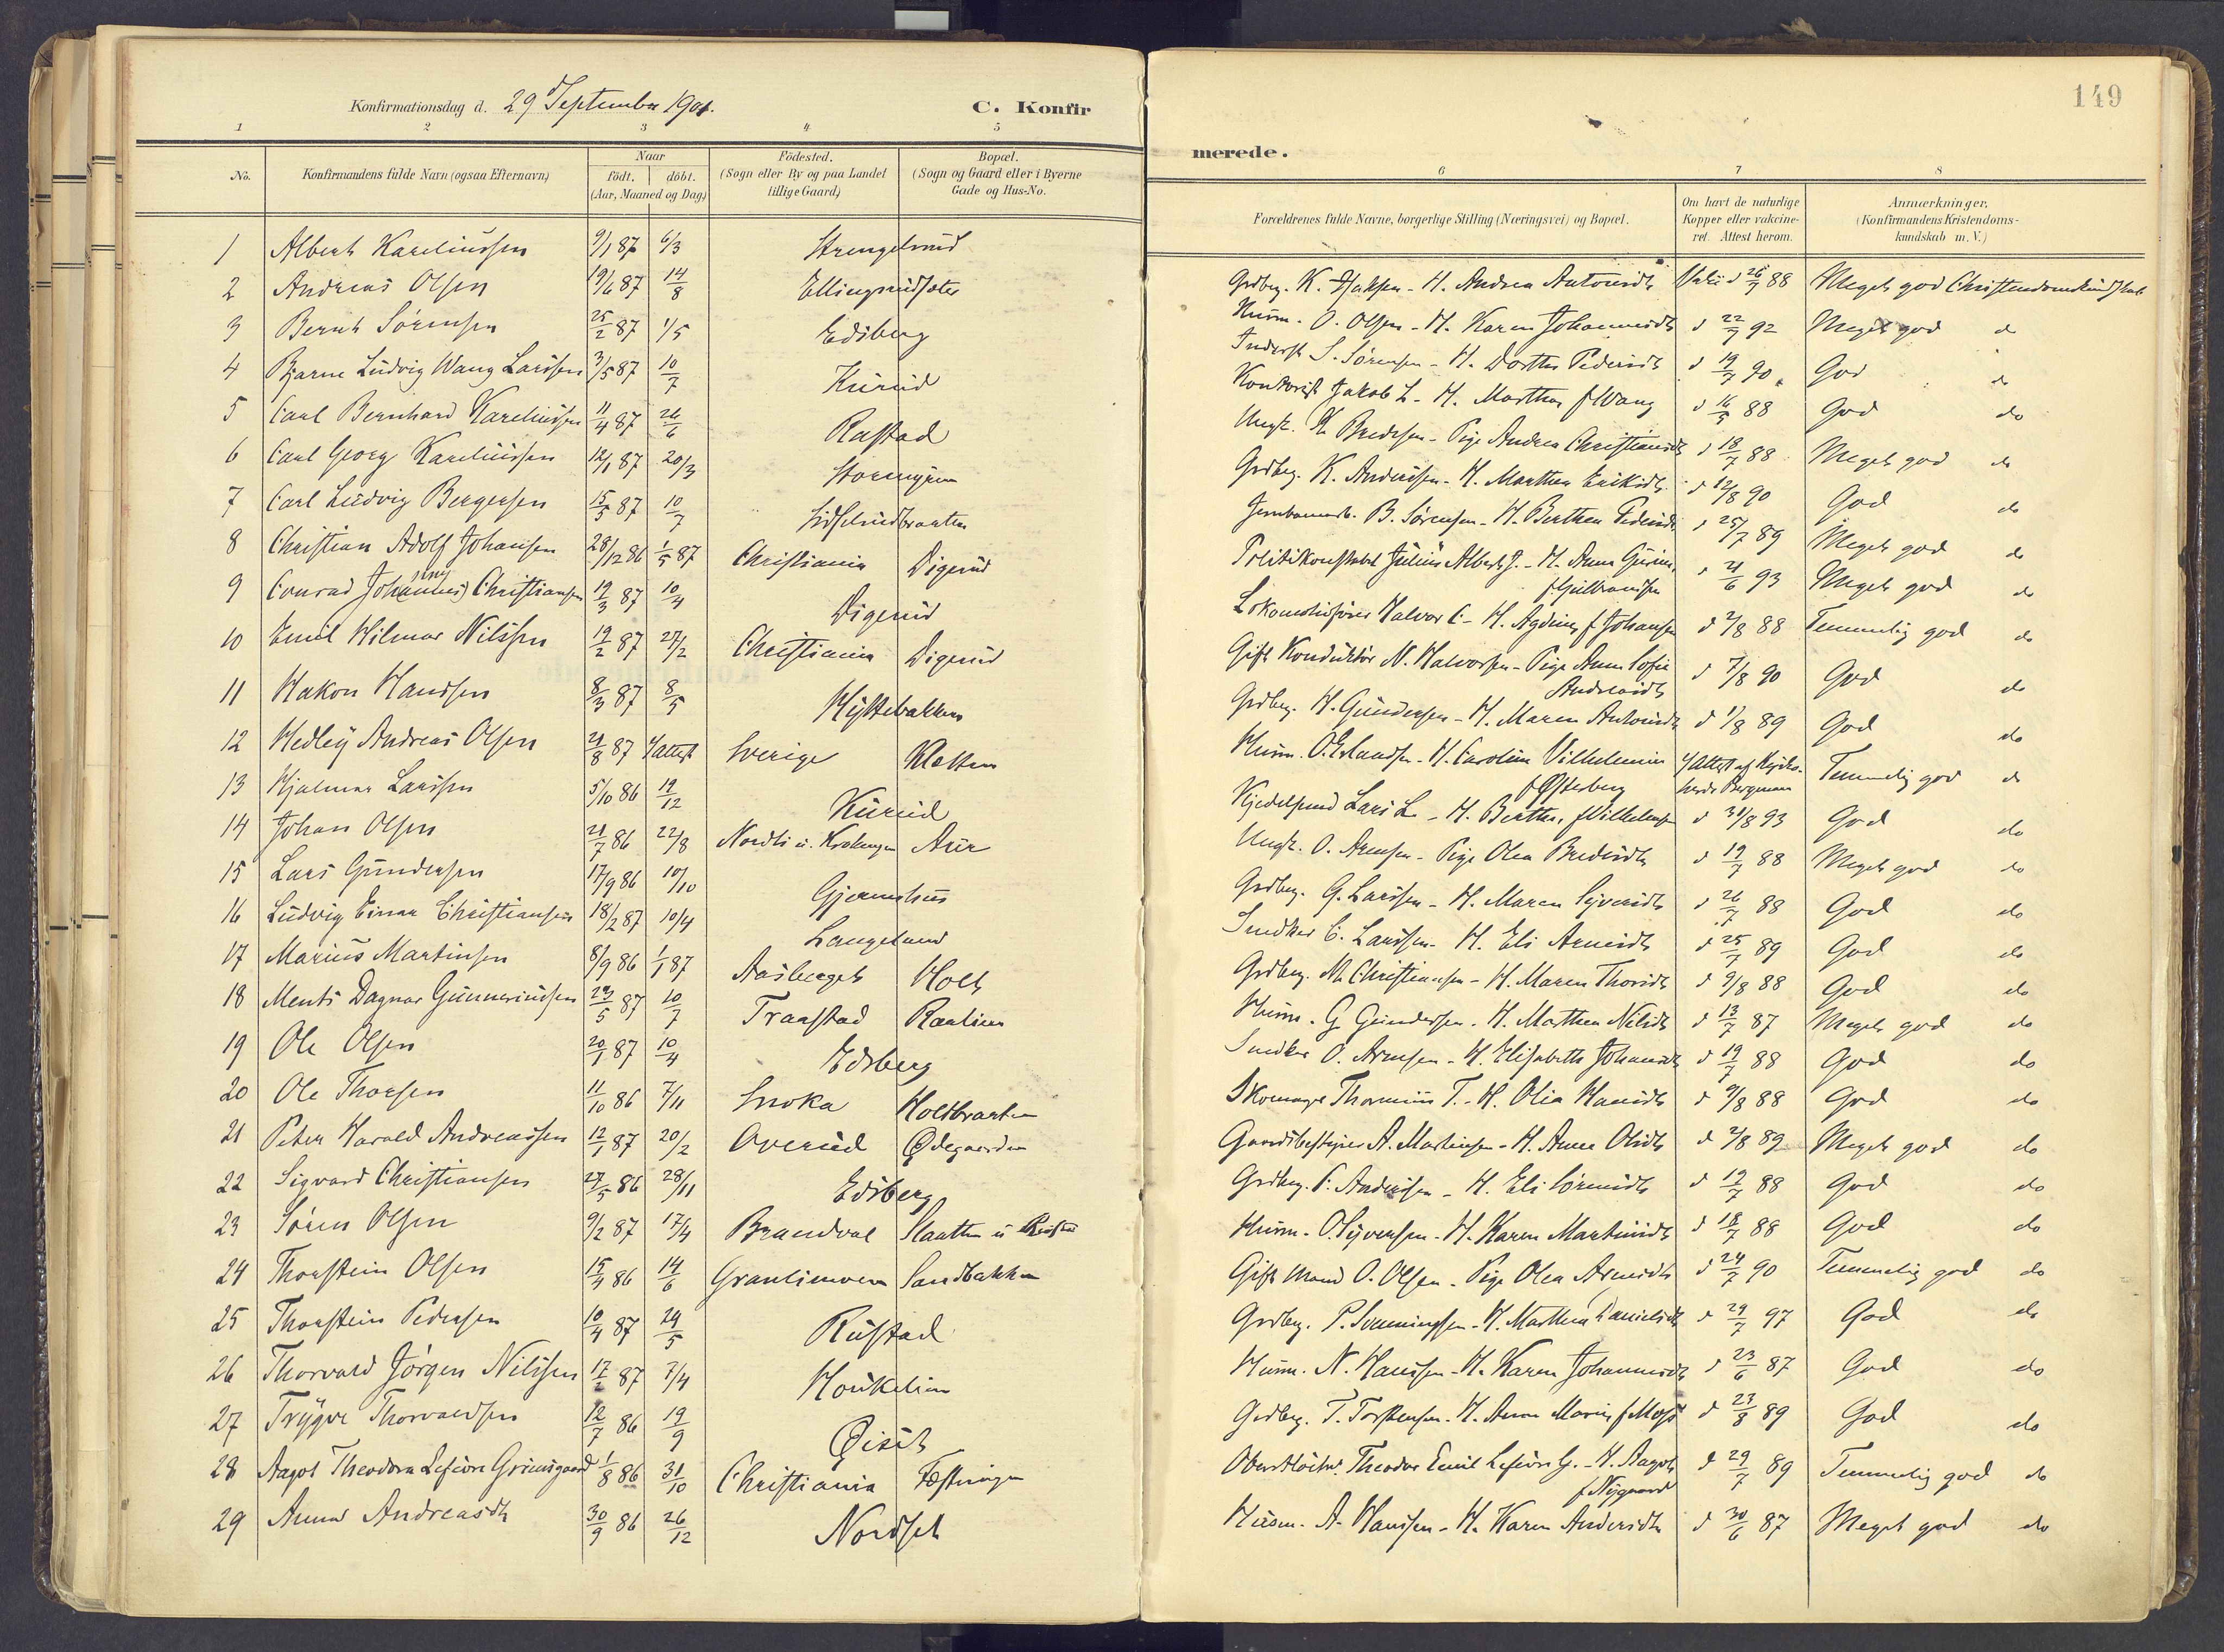 Konfirmationsdag d. 29 September 1901.
C. Konfir
merede.
149
1 2 3 4 5 6 7 8
No. Konfirmandens fulde Navn (ogsaa Efternavn) Naar födt. döbt. (Aar, Maaned og Dag) Födested. (Sogn eller By og paa Landet tillige Gaard) Bopæl. (Sogn og Gaard eller i Byerne Gade og Hus-No.
Forældrenes fulde Navne, borgerlige Stilling (Næringsvei) og Bopæl. Om havt de naturlige Kopper eller vakcineret. Attest herom. Anmærkninger. (Konfirmandens Kristendomskundskab m. V.)
1 Albert Kareliussen 9/1 87 6/3 Strengelsrud Grdbrg. K. Isaksen - H. Andrea Antonsdt d 26/7 88 Meget god Christendomskundskab
2 Andreas Olsen 19/6 87 14/8 Ellingsrudsæter Husm. O. Olsen - H. Karen Johannesdt d 22/7 92 Meget god do
3 Bernt Sörensen 25/2 87 1/5 Edsberg Inderst S. Sörensen - H. Dorthea Pedersdt d 19/7 90 God do
4 Bjarne Ludvig Wang Larssen 3/5 87 10/7 Kurud Kontorist Jakob L. - H. Marthea f Wang d 16/5 88 God do
5 Carl Bernhard Kareliussen 11/4 87 26/6 Rastad Ungk. K Bredesen - Pige Andrea Christiansdt d 18/7 88 Meget god do
6 Carl Georg Kareliussen 12/1 87 20/3 Grdbrg. K. Anderssen - H. Marthea Eriksdt. d 12/8 90 God do
7 Carl Ludvig Bergersen 15/5 87 10/7 Sidselrudbraaten Jernbanearb. B. Sörensen - H. Berthea Pedersdt d 25/7 89 Meget god do
8 Christian Adolf Johansen 28/12 86 1/5 87 Christiania Digerud Politikonstabel Julius Albert J. - H. Anna f Gulbrandsen d 21/6 93 Meget god do
9 Conrad Johannes Christiansen 19/3 87 10/4 Digerud Lokomotivförer Halvor C - H. Agdine f Johansen d 2/8 88 Temmelig god do
10 Emil Hilmar Nilssen 19/2 87 27/2 Christiania Digerud Gift Konduktör N. Halvorsen - Pige Anna Sofie Andreasdt d 7/8 90 God do
11 Hakon Hanssen 8/3 87 8/5 Hyttebakken Grdbrg. H. Gundersen - H. Maren Antonsdt d 1/8 89 God do
12 Hedley Andreas Olsen 21/8 87 attest Sverige Kletten Husm. O. Erlandsen - H. Caroline Vilhelmine f Østerberg Attest af Kyrkoherde Bergman Temmelig god do
13 Hjalmar Larssen 5/10 86 19/12 Kurud Lars L. - H. Berthe f Vilhelmsen d 31/8 93 God do
14 Johan Olsen 21/7 86 22/8 Nordli u. Aur Ungk. O. Arnesen - Pige Olea Bredesdt d 19/7 88 Meget god do
15 Lars Gundersen 17/9 86 10/10 Gjermshus Grdbrg. G. Larssen - H. Maren Syversdt d 26/7 88 God do
16 Ludvig Einar Christiansen 18/2 87 10/4 Langelund Snedker C. Larssen - H. Eli Arnesdt d 25/7 89 God do
17 Marius Martinsen 8/9 86 1/1 87 Aasberget Holt Grdbrg. M. Christiansen - H. Maren Thorsdt d 9/8 88 God do
18 Ments Dagnar Gunneriussen 29/5 87 10/7 Traastad Raalien Husm. G. Gundersen. H. Marthea Nilsdt d 13/7 87 Meget god do
19 Ole Olsen 20/1 87 10/4 Edsberg Snedker O. Arnesen - H. Elisabeth Johansdt d 19/7 88 God do
20 Ole Thorsen 11/10 86 7/11 Snoka Holtbraaten Skomager Thorinius T. - H. Olia Hansdt d 9/8 88 God do
21 Peter Harald Andreassen 12/1 87 20/2 Overud Ødegaarden Gaardsbestyrer A. Martinsen - H. Anne Olsdt d 2/8 89 Meget god do
22 Sigvard Christiansen 27/5 86 28/11 Edsberg Grdbrg. C. Anderssen - H. Eli Sörensdt d 19/7 88 God do
23 Sören Olsen 9/2 87 17/4 Brandval Slaatten u Husm. O. Syversen - H. Karen Martinsdt d 18/7 88 God do
24 Thorstein Olsen 15/4 86 14/6 Granlimoen Sandbakken Gift Mand O. Olsen - Pige Olea Arnesdt d 24/7 90 Temmelig god do
25 Thorstein Pedersen 10/4 87 29/5 Rustad Grdbrg. P. Svenningsen - H. Marthea Danielsdt d 29/7 97 God do
26 Thorvald Jörgen Nilssen 17/2 87 7/4 Houkelien Husm. N. Hanssen - H. Karen Johannesdt d 23/6 87 God do
27 Trygve Thorvaldsen 12/7 86 19/9 Øiset Grdbrg. T. Torstensen. H. Anna Marie f Moss d 23/8 89 God do
28 Aagot Theodora Lefèvre Grimsgaard 1/8 86 31/10 Christiania Fæstningen Oberstlöitn. Theodor Emil Lefèvre G. - H. Aagot f Nygaard d 29/7 89 Temmelig god do
29 Anna Andreasdt 30/9 86 26/12 Nordset Husm. A. Hanssen - H. Karen Andersdt d 30/6 87 Meget god do